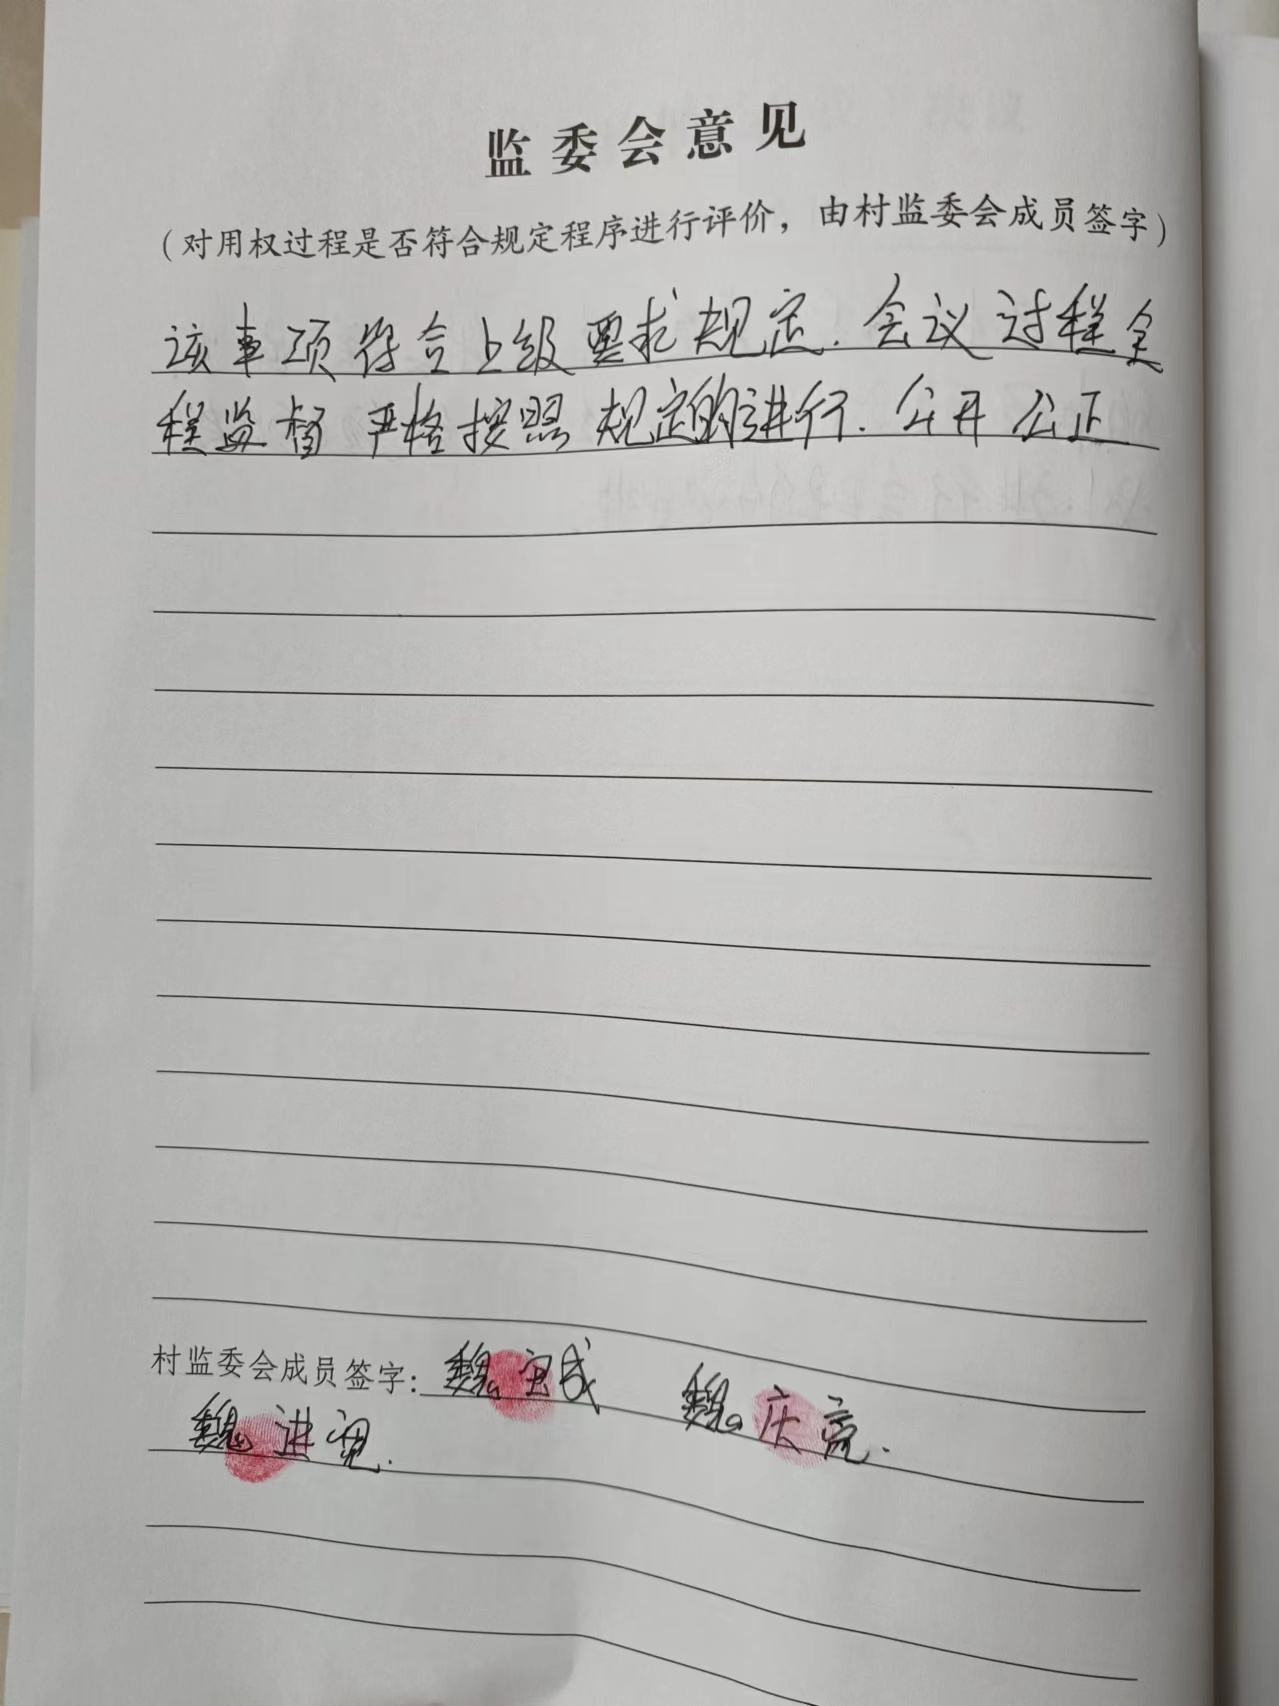 监委会意见
（对用权过程是否符合规定程序进行评价，由村监委会成员签字）
该事项符合上级要求规定.会议过程全
程监督严格按照规定的进行.公开公正
村监委会成员签字：魏宝成 魏庆亮.
魏进宽.